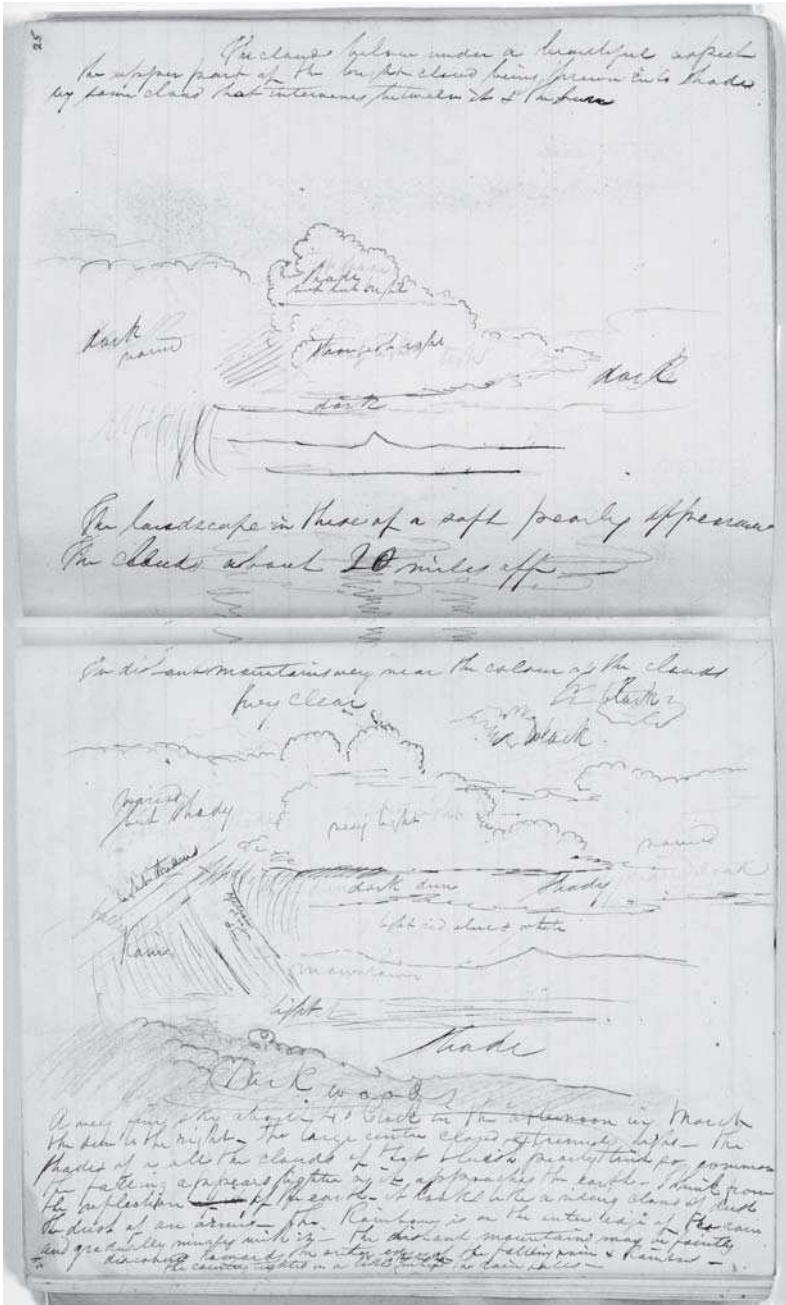 25
The cloud below under a beautiful aspect
the upper part of the bright cloud being thrown into shade
by some cloud that intervenes between it & the sun
Shade
but bright
dark
warm
strongest light
dark
dark
The landscape in these of a soft pearly appearance
The clouds about 20 miles off
The distant mountains very near the colour of the clouds
very clear
dark
black
warm
but shady
very light
warm
dark dun
Shady
light red blue & white
Rain
mountains
light
Shade
Dark woods
A very fine sky about 4 o Clock in the afternoon in March
the sun to the right The large centre cloud extremely light the
shades of it all the clouds of that pearly tint so common
the falling appears lighter as it approaches the earth I think from
the reflection of the earth it looks like a rising cloud of dust
the dust of an army The Rainbow is on the outer edge of the rain
and gradually mingles with it The distant mountains may be faintly
discovered towards the outer edge of the falling rain & Rainbow
the country lighted in a the rain falls